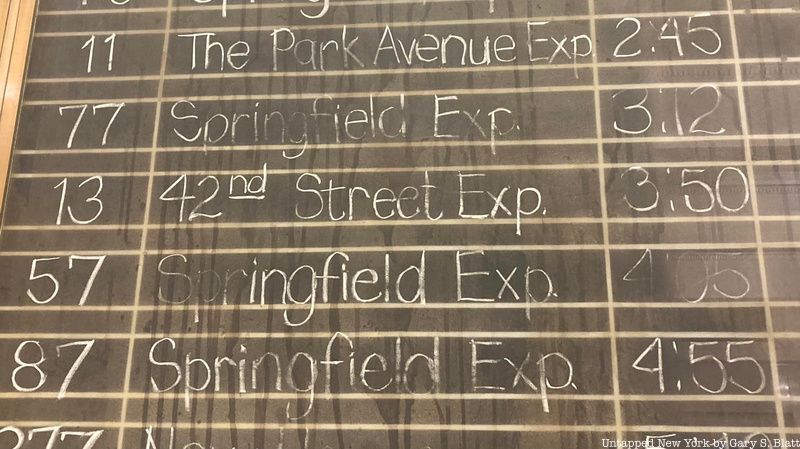 11 The Park Avenue Exp 2:45
77 Springfield Exp. 3:12
13 42nd Street Exp. 3:50
57 Springfield Exp. 4:35
87 Springfield Exp. 4:55
277
Untapped New York-by Gary S. Blatt